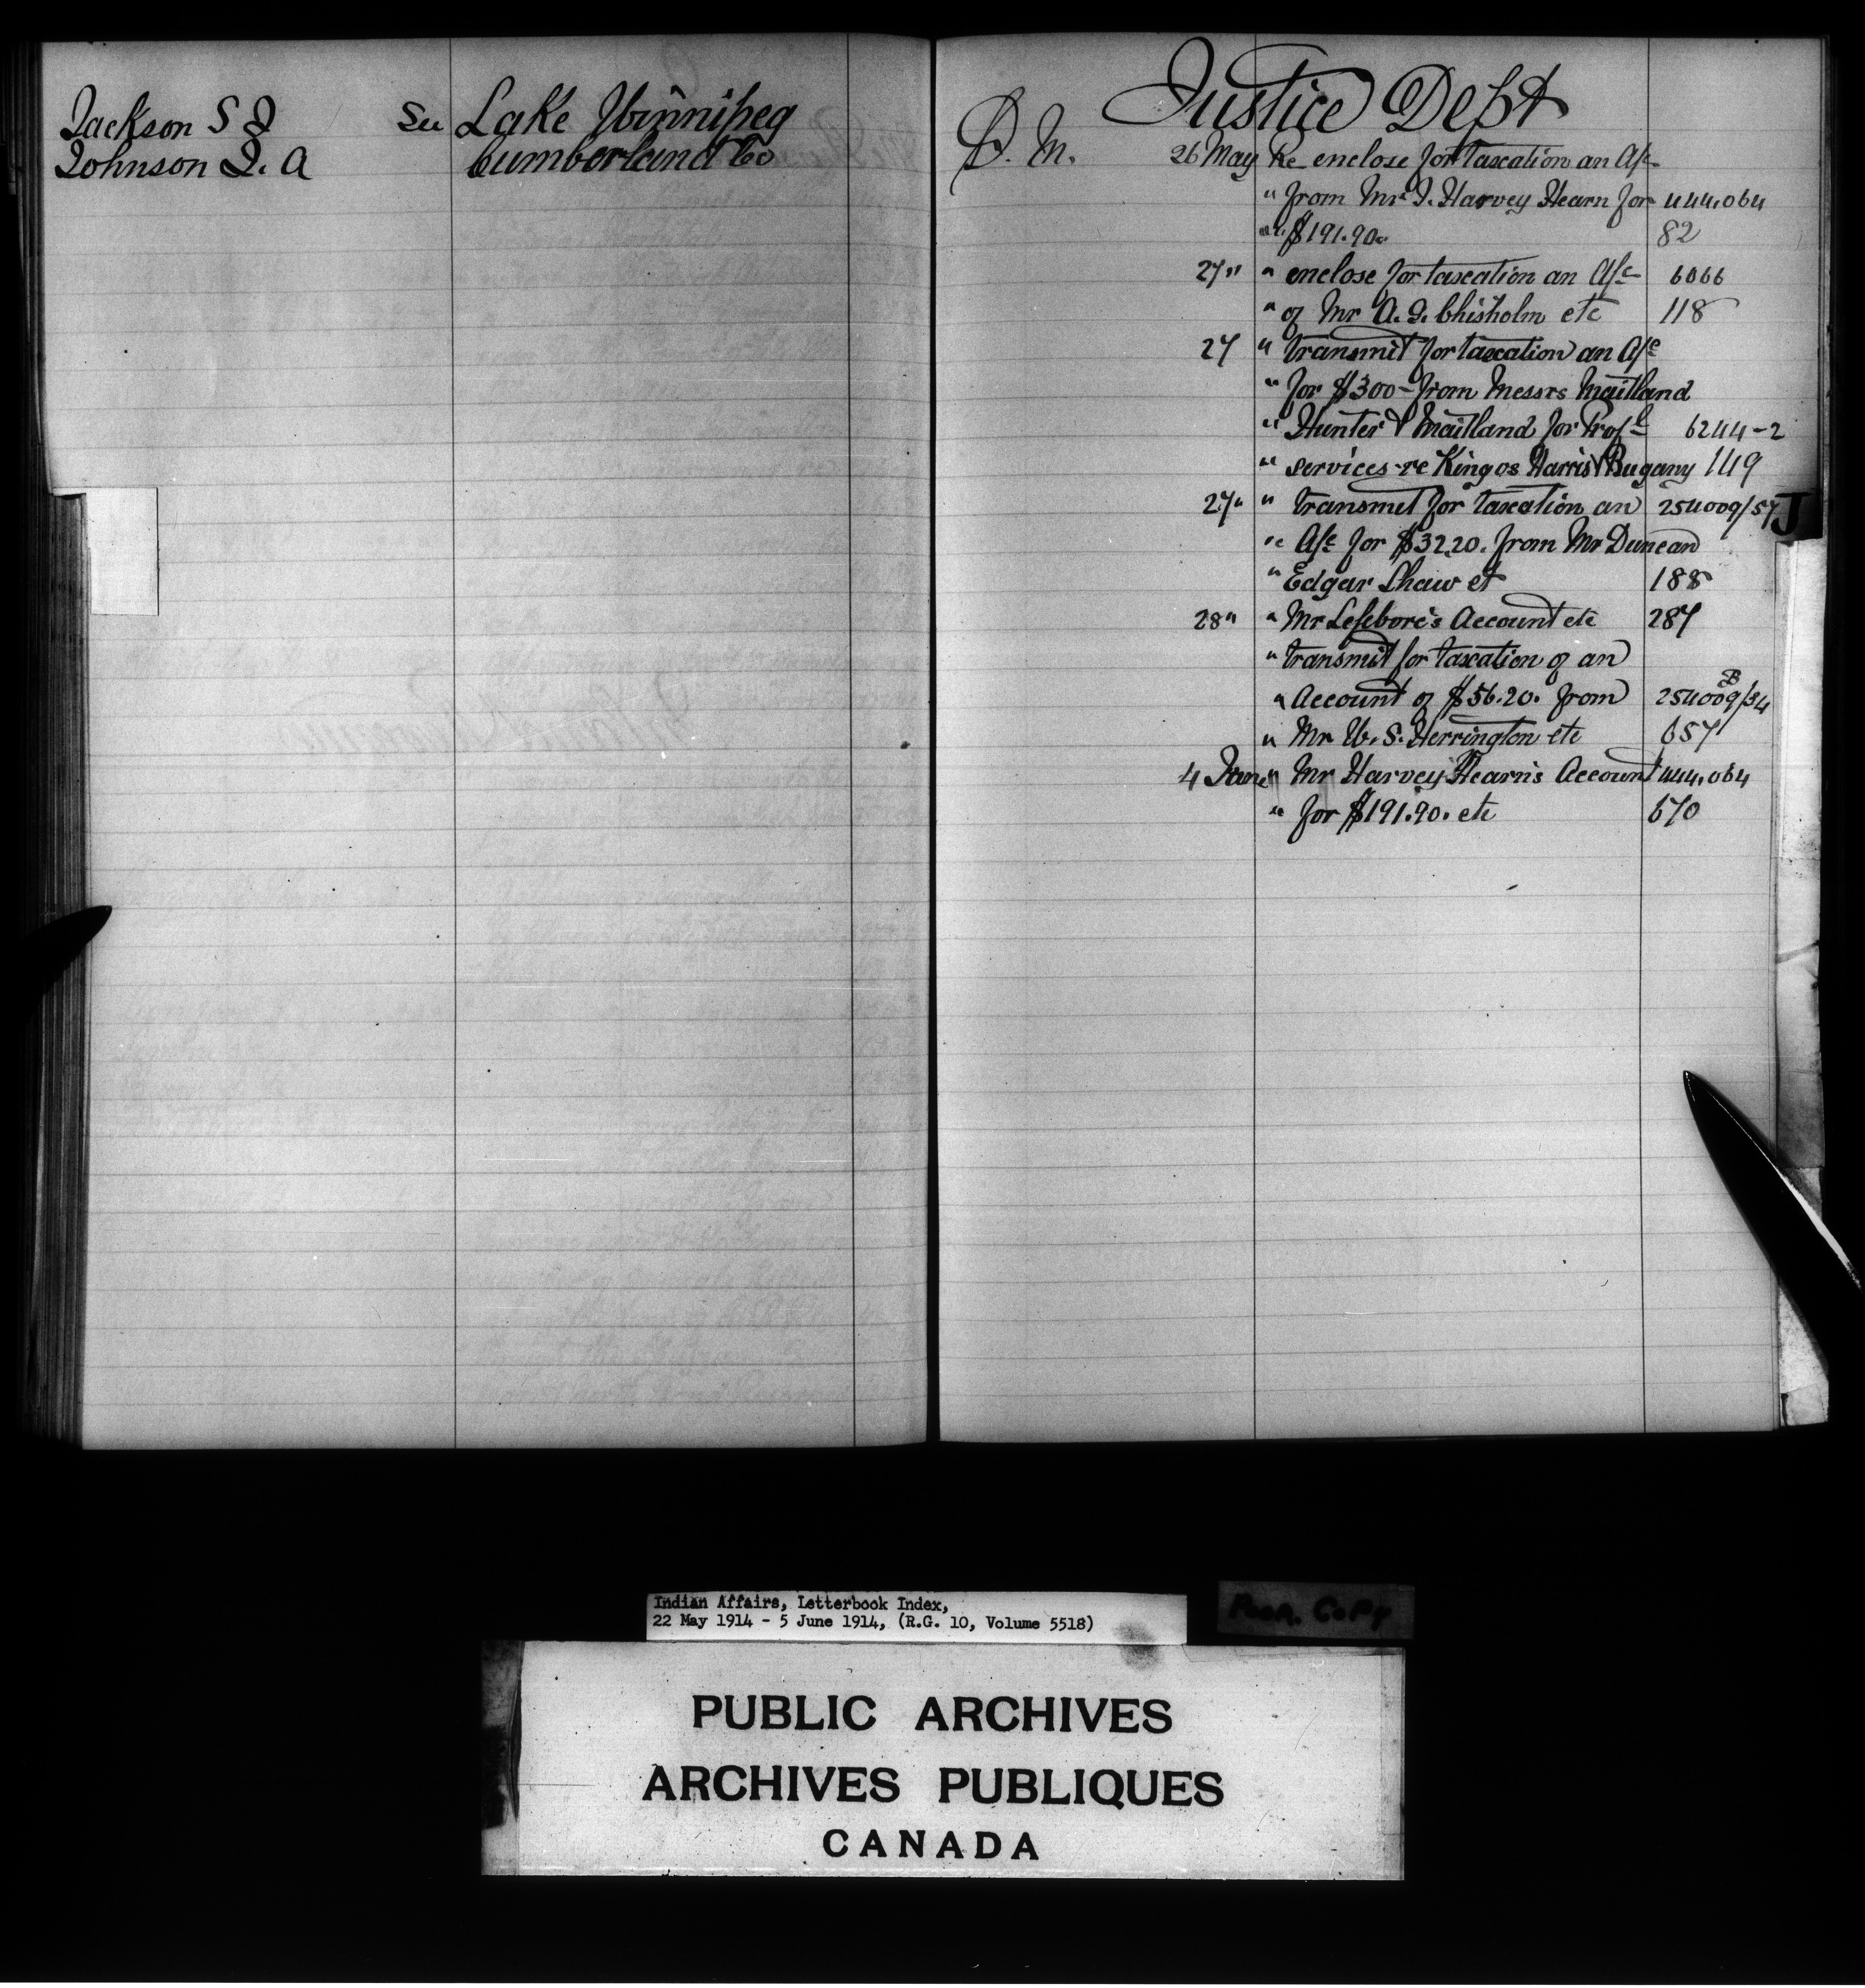 Jackson S J See Lake Winnipeg
Johnson J. A Cumberland Co
Justice Dept
D. M. 26 May Re enclose for taxation an A/c
" from Mr J. Harvey Hearn for 444,064
" $191.90. 82
27 " " enclose for taxation an A/c 6066
" of Mr A. G. Chisholm etc 118
27 " transmit for taxation an A/c
" for $300 - from Messrs Maitland
" Hunter & Maitland for Prof'l 6244-2
" services re King vs Harris & 149
27 " " transmit for taxation an 254009/57
" A/c for $32.20. from Mr Duncan
" Edgar Shaw et 188
28 " " Mr Lefebvre's Account etc 287
" transmit for taxation of an
" Account of $56.20. from 254009/34 B
" Mr W. S. Herrington etc 657
4 June " Mr Harvey Hearn's Account 444,064
" for $191.90. etc 670
J
Indian Affairs, Letterbook Index,
22 May 1914 - 5 June 1914, (R.G. 10, Volume 5518)
Poor Copy
PUBLIC ARCHIVES
ARCHIVES PUBLIQUES
CANADA